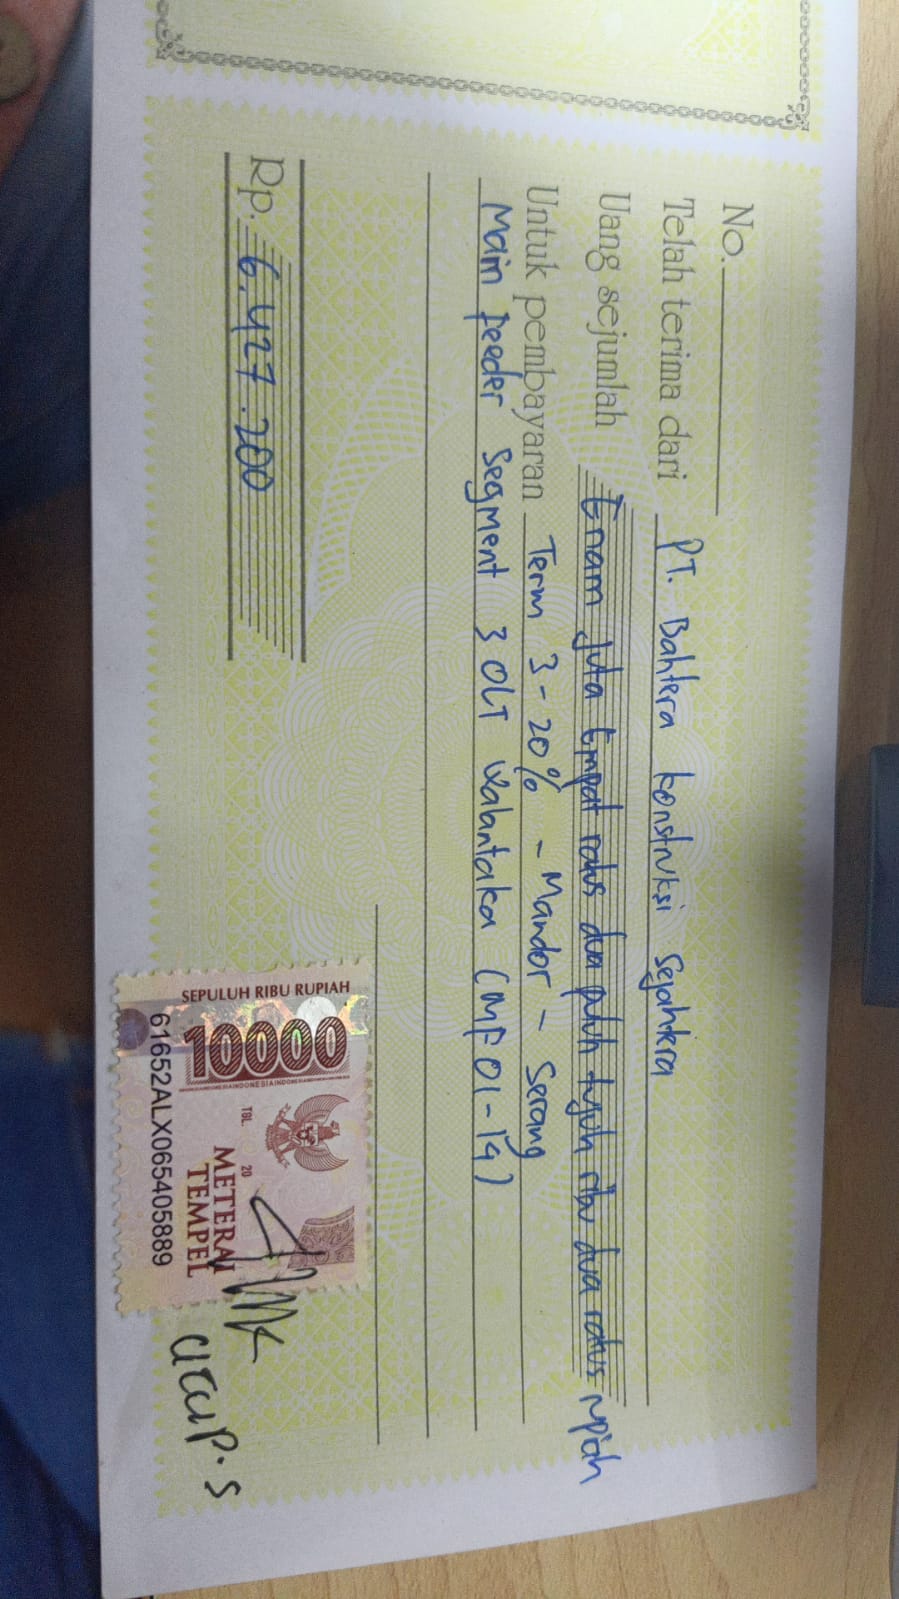 No.
Telah terima dari PT. Bahtera konstruksi Sejahtera
Uang sejumlah Enam juta Empat ratus dua puluh tujuh ribu dua ratus rupiah
Untuk pembayaran Term 3 - 20% - Mandor - Serang
Main Feeder Segment 3 OLT Walantaka (MF 01-19)
Rp. 6.427.200
SEPULUH RIBU RUPIAH
10000
TGL. 20
METERAI
TEMPEL
61652ALX065405889